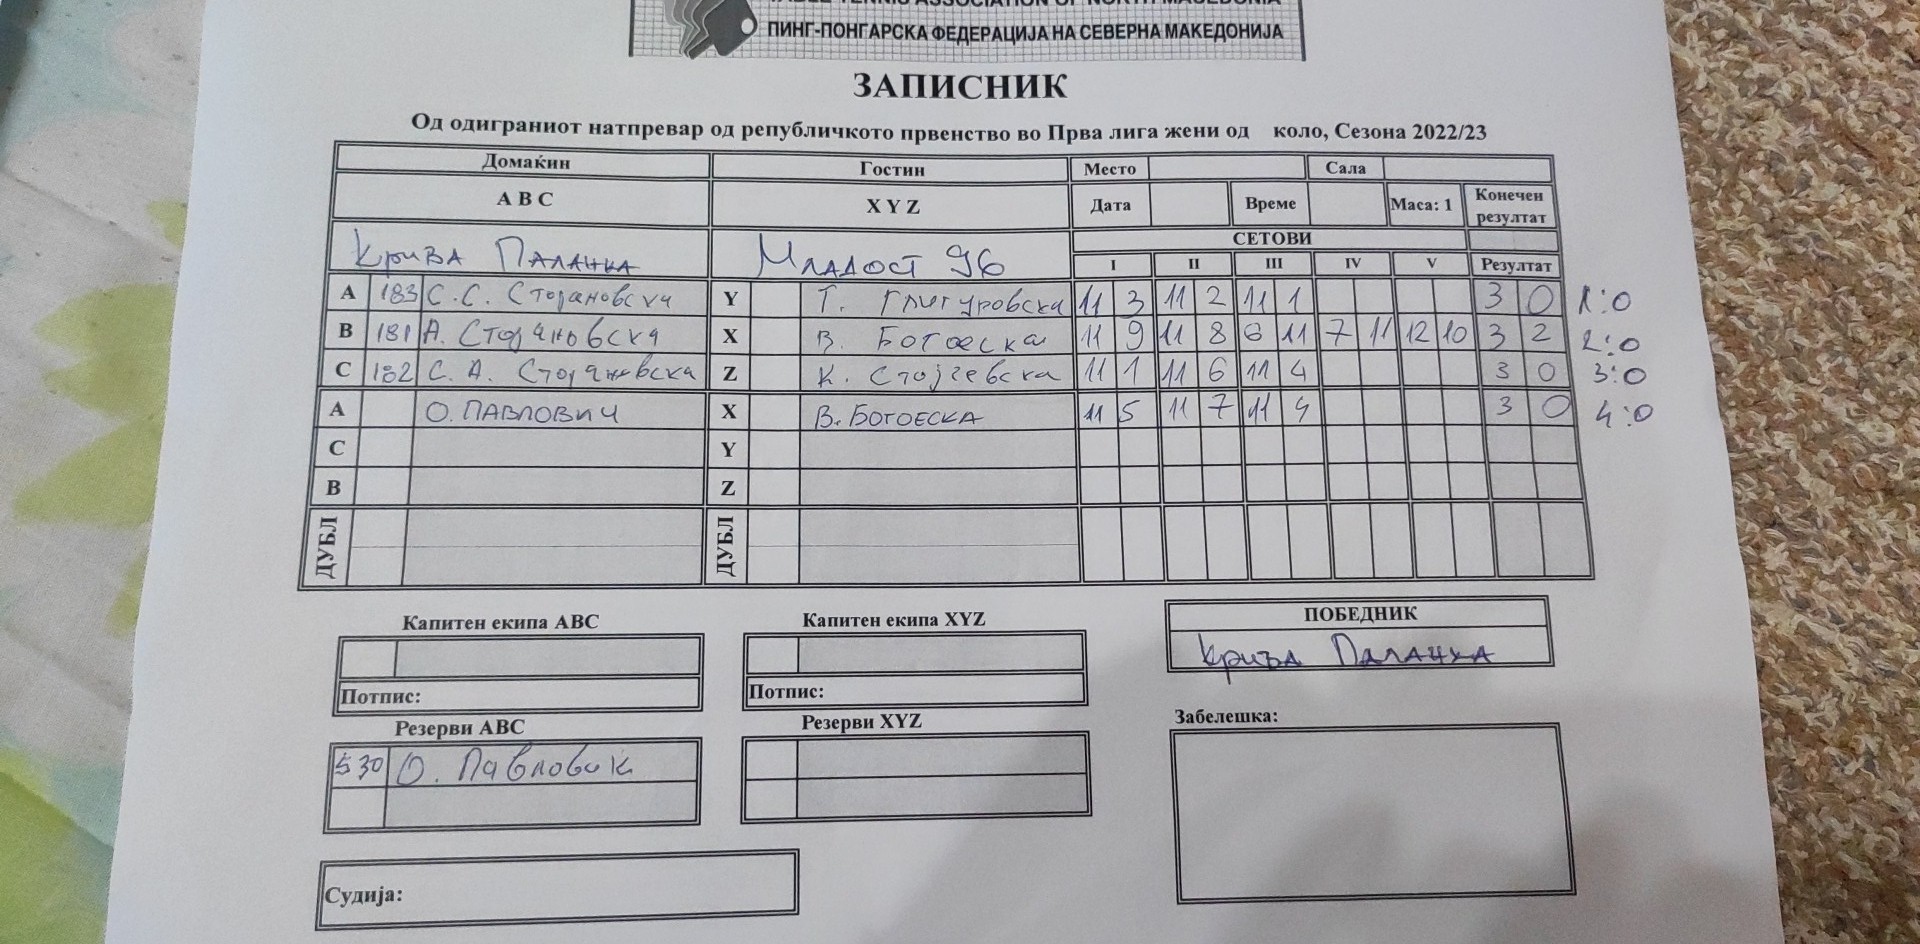 TABLE TENNIS ASSOCIATION OF NORTH MACEDONIA
ПИНГ-ПОНГАРСКА ФЕДЕРАЦИЈА НА СЕВЕРНА МАКЕДОНИЈА
ЗАПИСНИК
Од одиграниот натпревар од републичкото првенство во Прва лига жени од коло, Сезона 2022/23
Домаќин Гостин Место Сала
A B C X Y Z Дата Време Маса: 1 Конечен резултат
Крива Паланка Младост 96 СЕТОВИ
I II III IV V Резултат
A 183 С. С. Стојановска Y Т. Глигуровска 11 3 11 2 11 1 3 0 1:0
B 181 А. Стојановска X В. Ботоеска 11 9 11 8 6 11 7 11 12 10 3 2 2:0
C 182 С. А. Стојановска Z К. Стојчевска 11 1 11 6 11 4 3 0 3:0
A О. ПАВЛОВИЧ X В. БОТОЕСКА 11 5 11 7 11 4 3 0 4:0
C Y
B Z
ДУБЛ ДУБЛ
Капитен екипа ABC Капитен екипа XYZ ПОБЕДНИК
Крива Паланка
Потпис: Потпис:
Резерви ABC Резерви XYZ Забелешка:
530 О. Павловиќ
Судија: